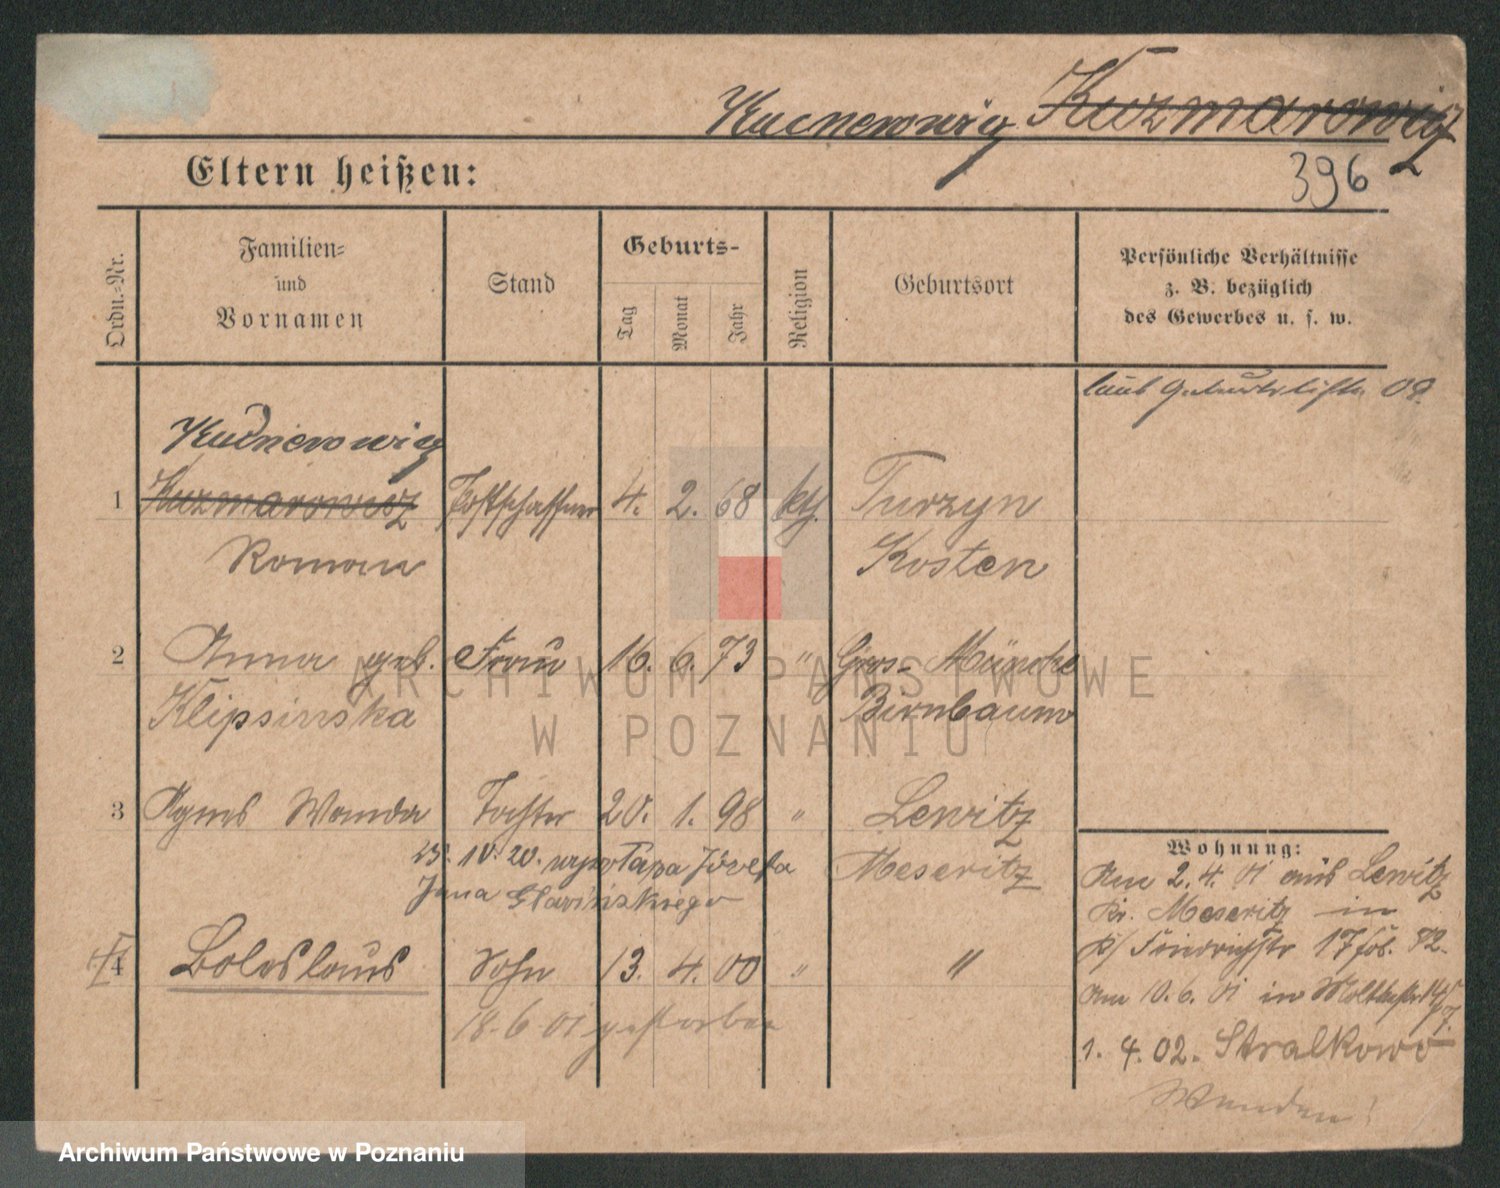 Kucnerowicz Kuzmarowicz
Eltern heißen:
396
Ordn.-Nr.
Familien- und Vornamen
Stand
Geburts-
Tag
Monat
Jahr
Religion
Geburtsort
Persönliche Verhältnisse
z. B. bezüglich
des Gewerbes u. s. w.
laut Geburtsliste 08.
Kucnerowicz
1 Kuzmarowicz Postschaffner 4. 2. 68 kth. Turzyn
Roman Kosten
2 Anna geb. Frau 16. 6. 73 " Gros- Münche
Klipsinska Birnbaum
3 Agnes Wanda Tochter 20. 1. 98 " Lewitz
Meseritz
Jana
4 Boleslaus Sohn 13. 4. 00 " "
18. 6 01 gestorben
Wohnung:
Am 2. 4. 01 aus Lewitz
Kr. Meseritz in
Friedrichstr 17
am 10. 6. 01 in Moltkestr
1. 4. 02. Stralkowo
Wenden!
ARCHIWUM PAŃSTWOWE
W POZNANIU
Archiwum Państwowe w Poznaniu